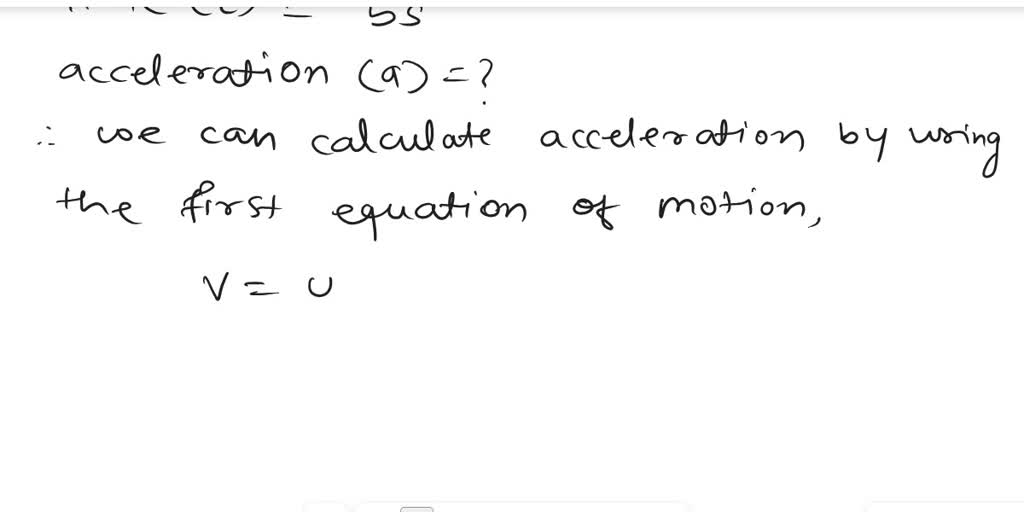 (t) = 5s
acceleration (a) = ?
∴ we can calculate acceleration by using
the first equation of motion,
v = u